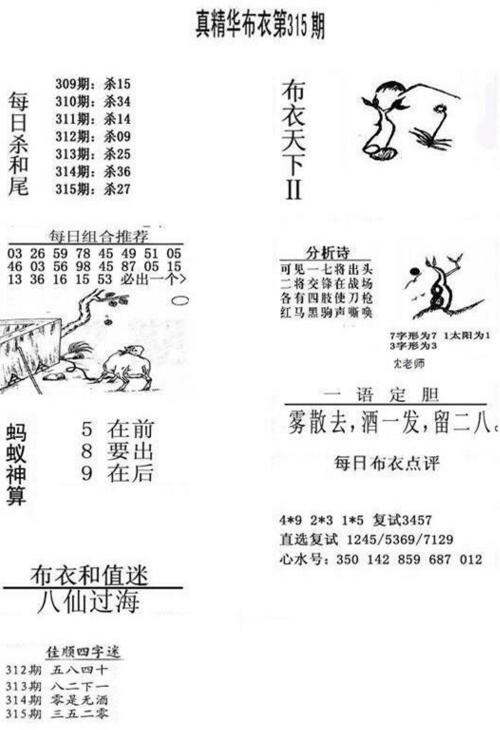 真精华布衣第315期
每日杀和尾
309期：杀15
310期：杀34
311期：杀14
312期：杀09
313期：杀25
314期：杀36
315期：杀27
布衣天下II
每日组合推荐
03 26 59 78 45 49 51 05
46 03 56 98 45 87 05 15
13 36 16 15 53 必出一个>
分析诗
可见一七将出头
二将交锋在战场
各有四肢使刀枪
红马黑驹声嘶唤
7字形为7 1太阳为1
3字形为3
沈老师
一语定胆
雾散去，酒一发，留二八。
蚂蚁神算
5 在前
8 要出
9 在后
每日布衣点评
4*9 2*3 1*5 复试3457
直选复试 1245/5369/7129
心水号：350 142 859 687 012
布衣和值迷
八仙过海
佳顺四字迷
312期 五八四十
313期 八二下一
314期 零是无酒
315期 三五二零